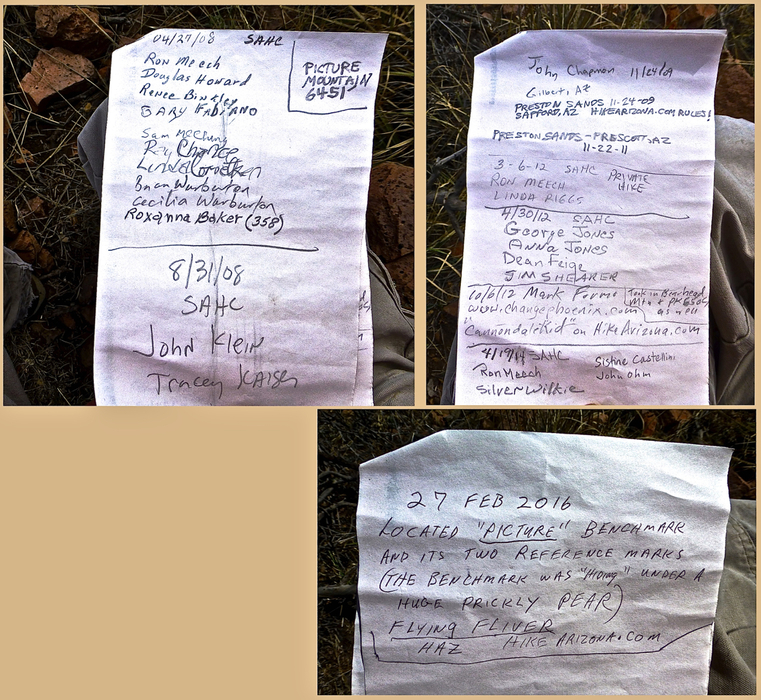 04/27/08 SAHC
Ron Meech
Douglas Howard
Renee Binkley
GARY FABIANO
PICTURE
MOUNTAIN
6451
Sam McClung
Ray Chance
Linda
Brian Warburton
Cecilia Warburton
Roxanna Baker (358)
8/31/08
SAHC
John Klein
Tracey Kaiser
John Chapman 11/24/09
Gilbert, AZ
PRESTON SANDS 11-24-09
SAFFORD, AZ HIKEARIZONA.COM RULES!
PRESTON SANDS - PRESCOTT, AZ
11-22-11
3-6-12 SAHC PRIVATE
HIKE
RON MEECH
LINDA RIGGS
4/30/12 SAHC
George Jones
Anna Jones
Dean Feige
JIM SHEARER
10/6/12 Mark
Took in Bearhead
Mtn & PK 6505
as well
www.changephoenix.com
"CannondaleKid" on HikeArizona.com
4/17/14 SAHC
Ron Meech
Silver Wilkie
Sistine Castellini
John Ohm
27 FEB 2016
LOCATED "PICTURE" BENCHMARK
AND ITS TWO REFERENCE MARKS
(THE BENCHMARK WAS "HIDING" UNDER A
HUGE PRICKLY PEAR)
FLYING FLIVER
HAZ HIKE ARIZONA.COM